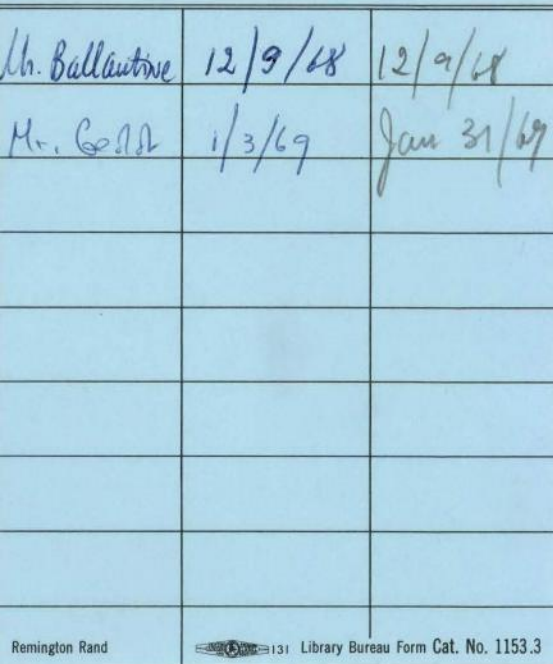 Mr. Ballantine 12/9/68 12/9/68
Mr. 1/3/69 Jan 31/69
Remington Rand 131 Library Bureau Form Cat. No. 1153.3